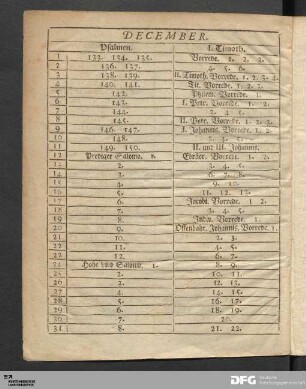 DECEMBER.
Psalmen. I. Timoth.
1 132. 134. 135. Vorrede. 1. 2. 3.
2 136. 137. 4. 5. 6.
3 138. 139. II. Timoth. Vorrede. 1. 2. 3. 4.
4 140. 141. Tit. Vorrede. 1. 2. 3.
5 142. Philem. Vorrede. 1.
6 143. I. Petr. Vorrede. 1. 2.
7 144. 3. 4. 5.
8 145. II. Petr. Vorrede. 1. 2. 3.
9 146. 147. I. Johannis. Vorrede. 1. 2.
10 148. 3. 4. 5.
11 149. 150. II. und III. Johannis.
12 Prediger Salomo. 1. Ebräer. Vorrede. 1. 2.
13 2. 3. 4. 5.
14 3. 6. 7. 8.
15 4. 9. 10.
16 5. 11. 12. 13.
17 6. Jacobi. Vorrede. 1. 2.
18 7. 3. 4. 5.
19 8. Judæ. Vorrede. 1.
20 9. Offenbahr. Johannis. Vorrede. 1.
21 10. 2. 3.
22 11. 4. 5.
23 12. 6. 7.
24 Hohe Lied Salom. 1. 8. 9.
25 2. 10. 11.
26 3. 12. 13.
27 4. 14. 15.
28 5. 16. 17.
29 6. 18. 19.
30 7. 20.
31 8. 21. 22.
DFG